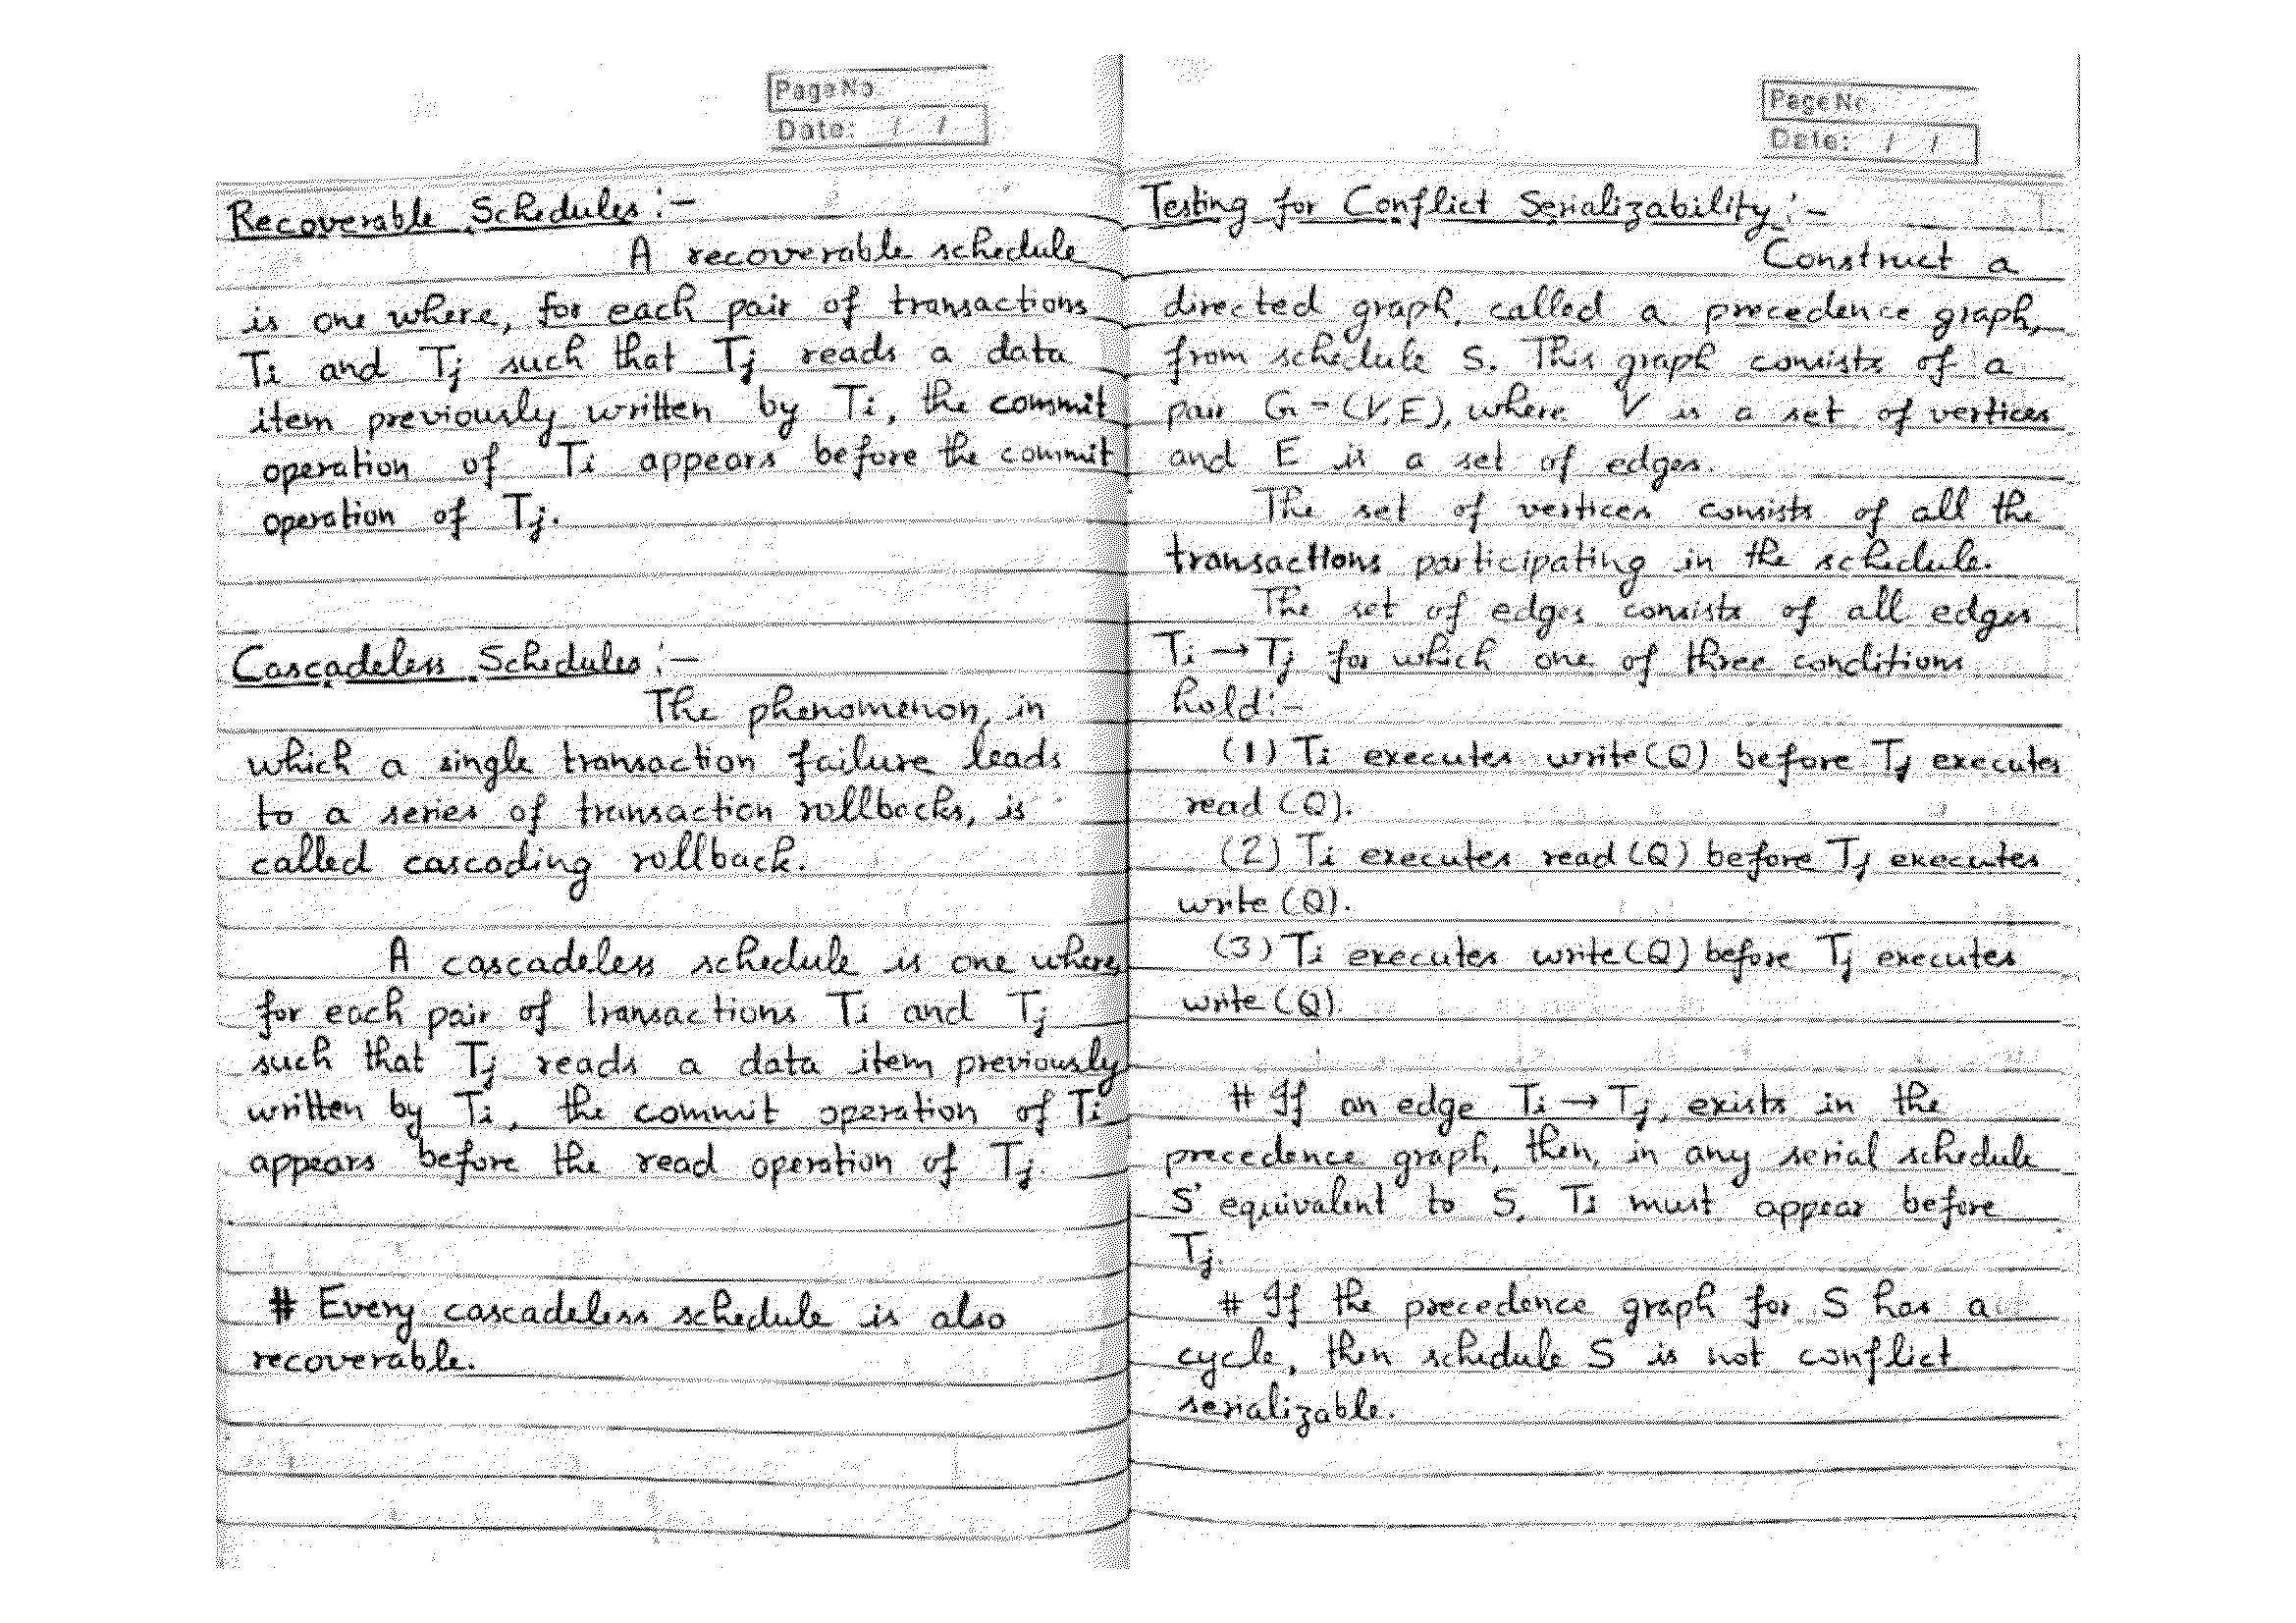 Page No.
Date: / /
Recoverable Schedules :-
A recoverable schedule
is one where, for each pair of transactions
Ti and Tj such that Tj reads a data
item previously written by Ti, the commit
operation of Ti appears before the commit
operation of Tj.
Cascadeless Schedules :-
The phenomenon, in
which a single transaction failure leads
to a series of transaction rollbacks, is
called cascading rollback.
A cascadeless schedule is one where
for each pair of transactions Ti and Tj
such that Tj reads a data item previously
written by Ti, the commit operation of Ti
appears before the read operation of Tj.
# Every cascadeless schedule is also
recoverable.
Page No.
Date: / /
Testing for Conflict Serializability :-
Construct a
directed graph, called a precedence graph,
from schedule S. This graph consists of a
pair G = (V, E), where V is a set of vertices
and E is a set of edges.
The set of vertices consists of all the
transactions participating in the schedule.
The set of edges consists of all edges
Ti → Tj for which one of three conditions
hold :-
(1) Ti executes write(Q) before Tj executes
read (Q).
(2) Ti executes read (Q) before Tj executes
write (Q).
(3) Ti executes write(Q) before Tj executes
write (Q).
# If an edge Ti → Tj, exists in the
precedence graph, then, in any serial schedule
S' equivalent to S, Ti must appear before
Tj.
# If the precedence graph for S has a
cycle, then schedule S is not conflict
serializable.